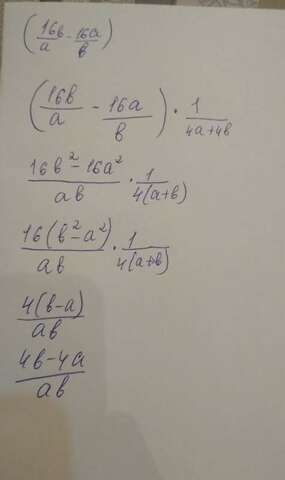 (16в/a - 16a/в)
(16в/a - 16a/в) · 1/(4a+4в)
(16в² - 16a²)/(aв) · 1/(4(a+в))
16(в² - a²)/(aв) · 1/(4(a+в))
4(в-a)/(aв)
(4в-4a)/(aв)